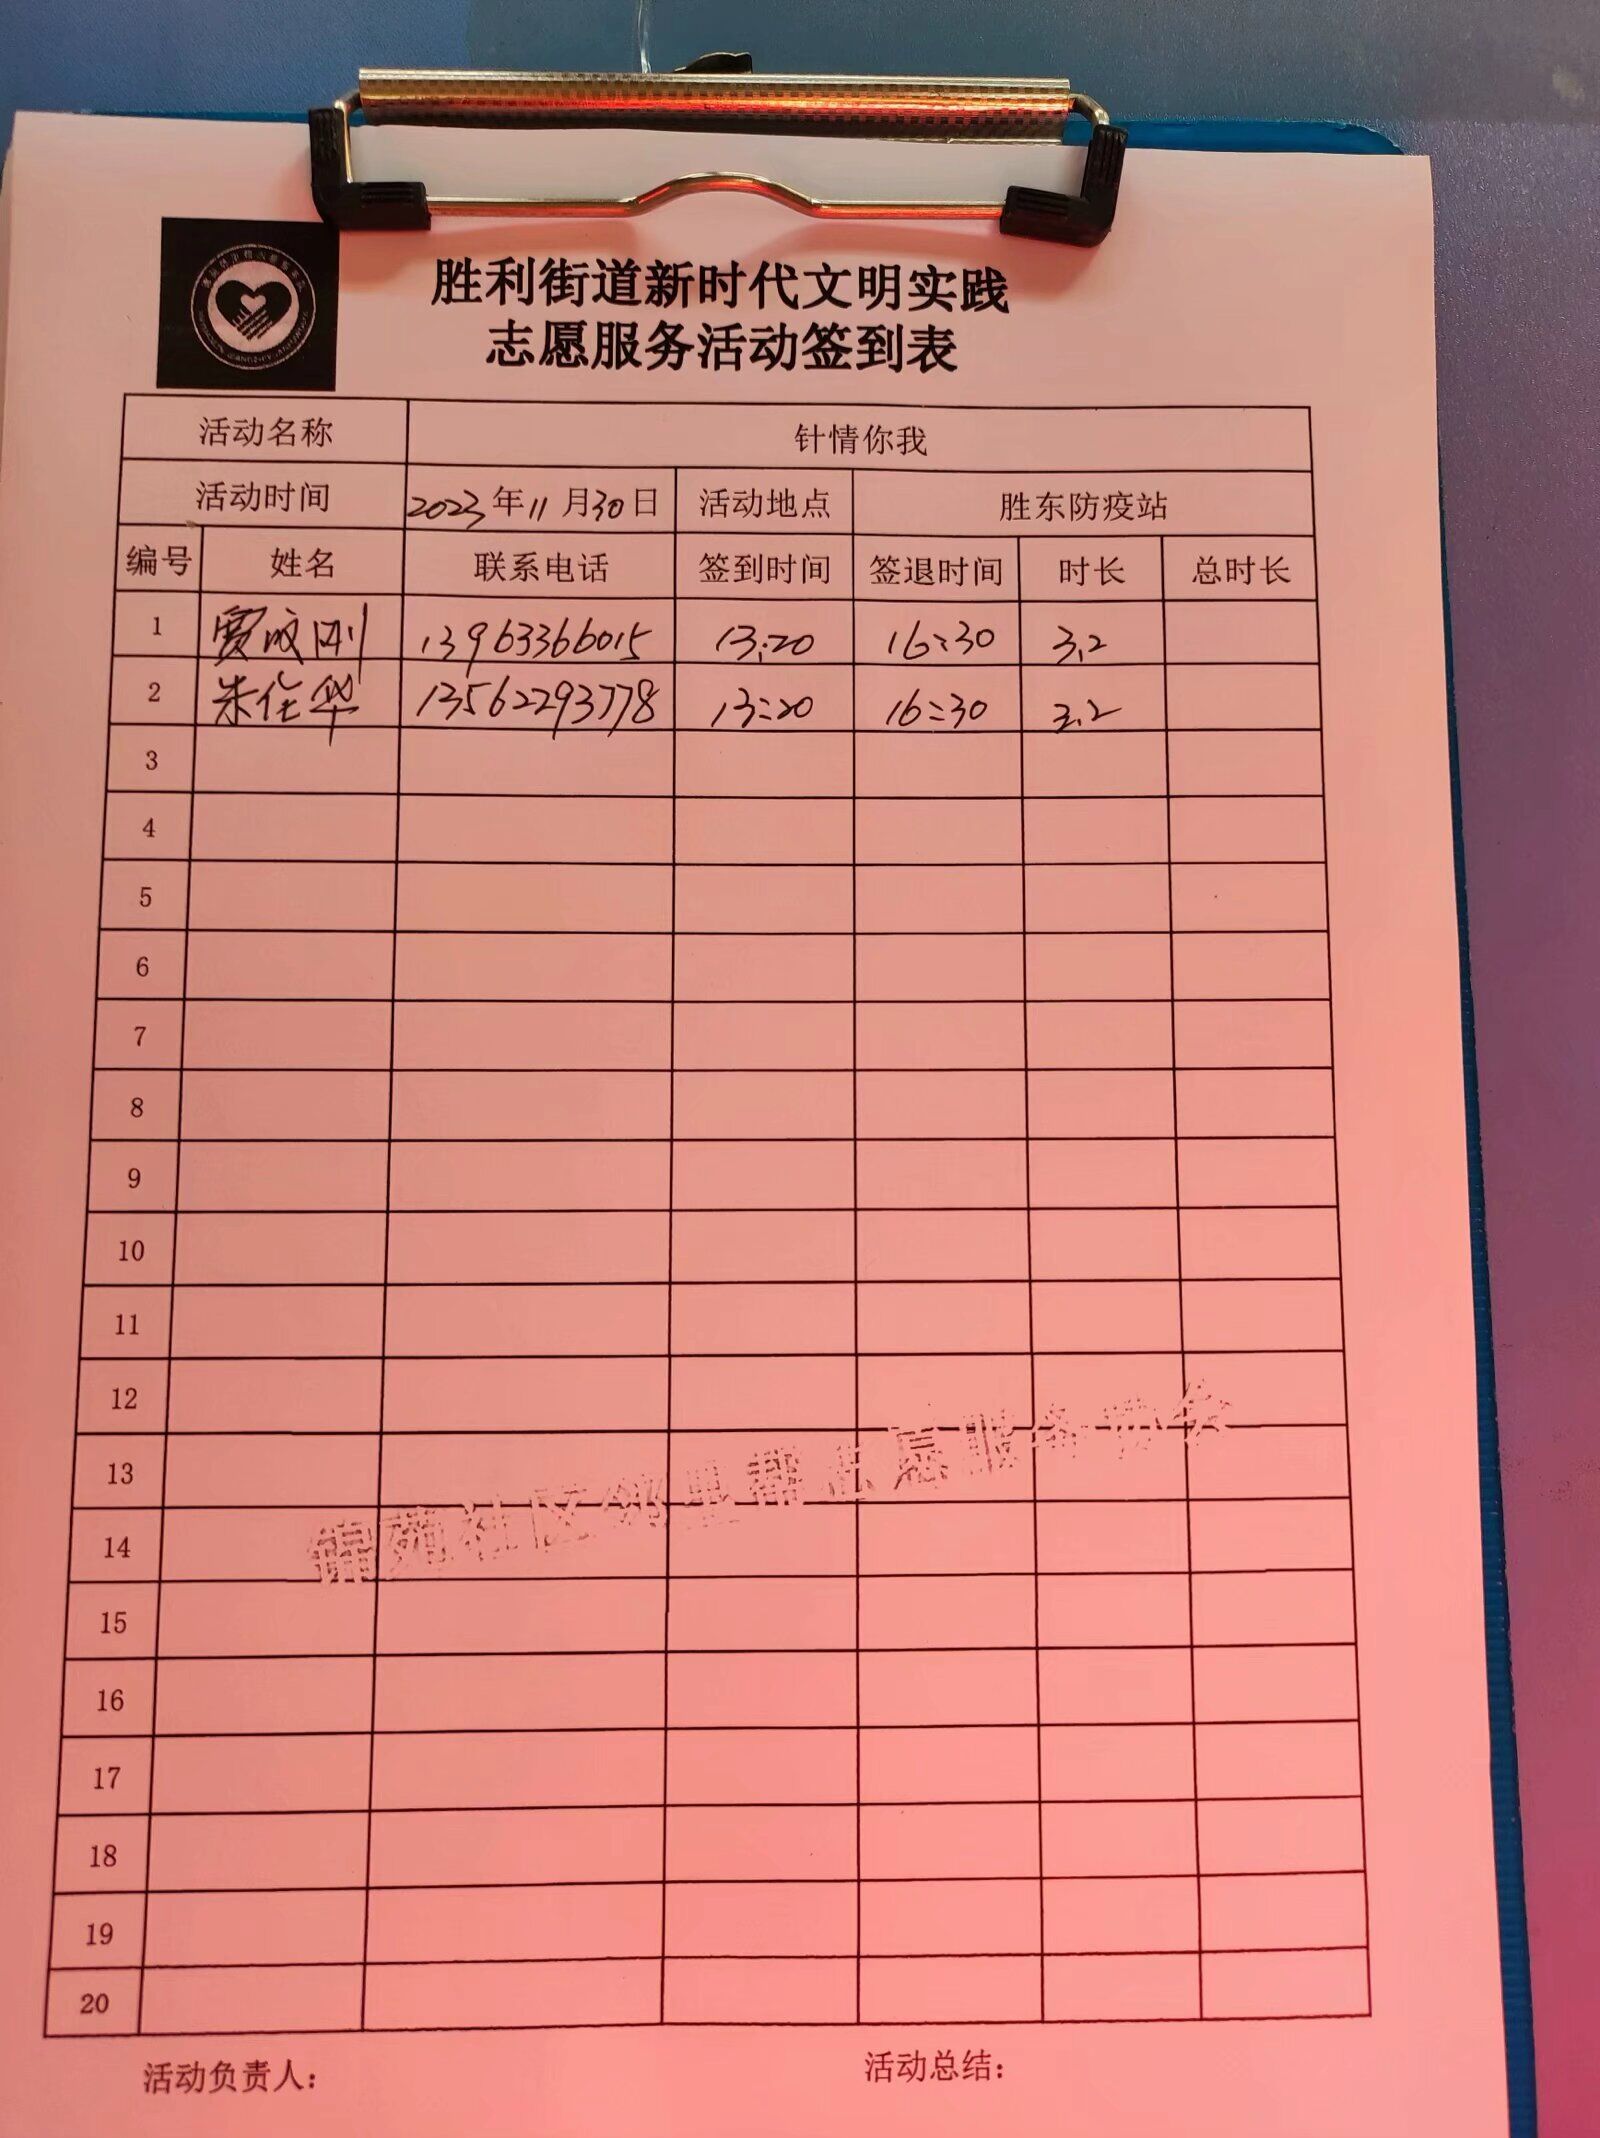 胜利街道新时代文明实践
志愿服务活动签到表
活动名称 针情你我
活动时间 2023年11月30日 活动地点 胜东防疫站
编号 姓名 联系电话 签到时间 签退时间 时长 总时长
1 贾 刚 13963366015 13:20 16:30 3.2
2 朱佳华 13562293778 13:20 16:30 3.2
3
4
5
6
7
8
9
10
11
12
13
14
锦苑社区邻里帮志愿服务协会
15
16
17
18
19
20
活动负责人： 活动总结：